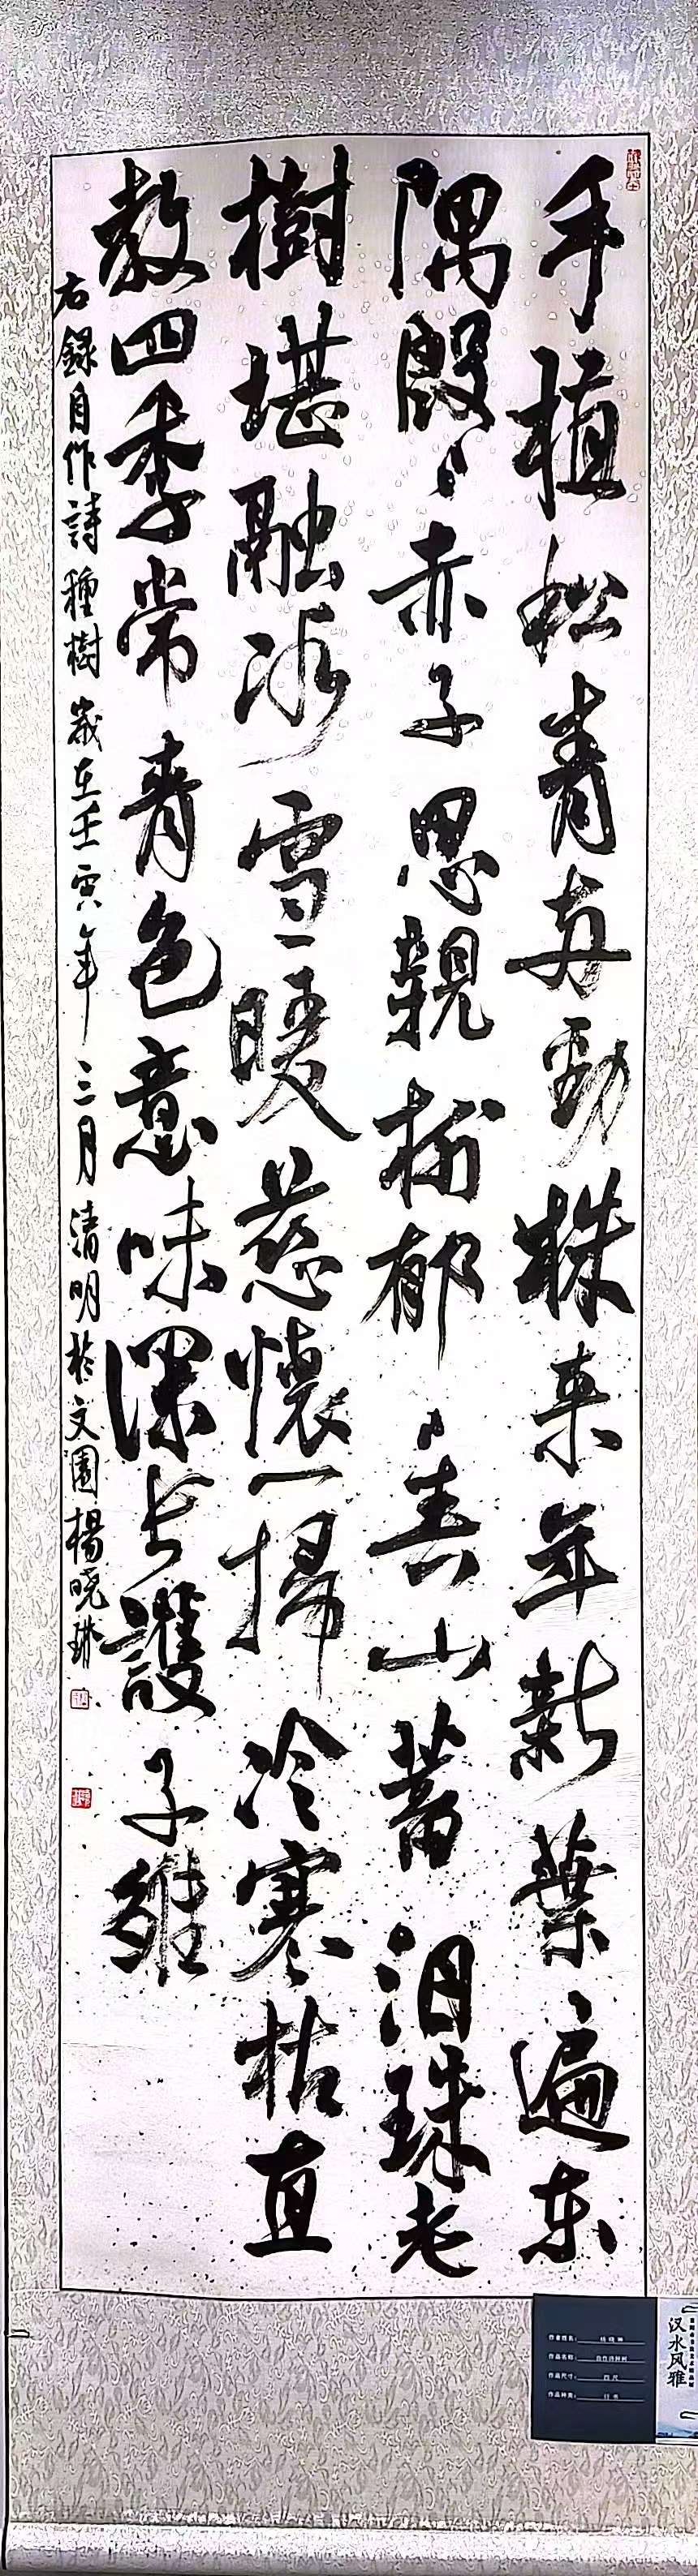 手植松青劲株来年新葉遍东
隅殷々赤子思親树郁々春山蓄泪珠老
樹堪融冰雪暖慈懷一掃冷寒枯直
教四季常青色意味深长護子雛
右録自作詩種樹歳在壬寅年三月清明於文園楊曉琳
作者姓名：杨晓琳
作品名称：自作诗种树
作品尺寸：四尺
作品种类：
汉水风雅